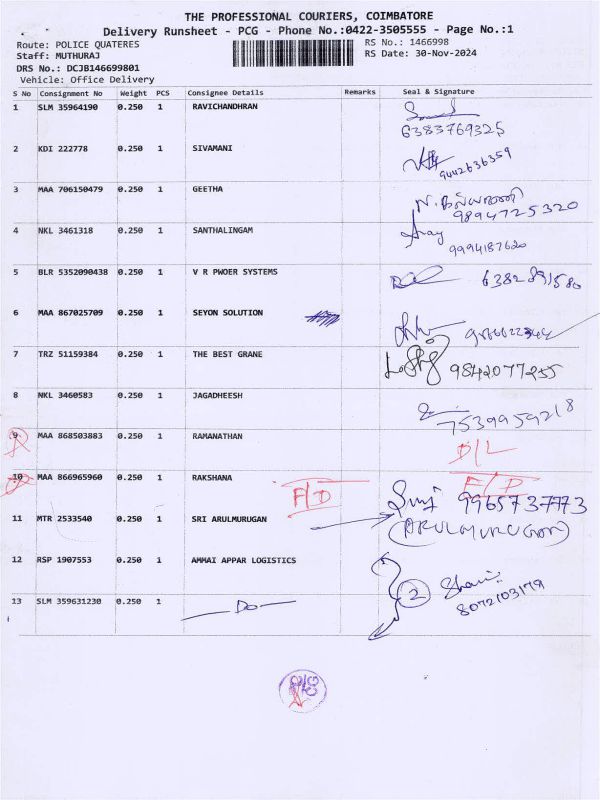 THE PROFESSIONAL COURIERS, COIMBATORE
Delivery Runsheet - PCG - Phone No.:0422-3505555 - Page No.:1
Route: POLICE QUATERES RS No.: 1466998
Staff: MUTHURAJ RS Date: 30-Nov-2024
DRS No.: DCJB146699801
Vehicle: Office Delivery
S No Consignment No Weight PCS Consignee Details Remarks Seal & Signature
1 SLM 35964190 0.250 1 RAVICHANDHRAN
6383769325
2 KDI 222778 0.250 1 SIVAMANI
9442636359
3 MAA 706150479 0.250 1 GEETHA
9894725320
4 NKL 3461318 0.250 1 SANTHALINGAM
9994187620
5 BLR 5352090438 0.250 1 V R PWOER SYSTEMS
6 MAA 867025709 0.250 1 SEYON SOLUTION
7 TRZ 51159384 0.250 1 THE BEST GRANE
9842077255
8 NKL 3460583 0.250 1 JAGADHEESH
7539959218
9 MAA 868503883 0.250 1 RAMANATHAN D/L
10 MAA 866965960 0.250 1 RAKSHANA F/D F/D
9965737773
11 MTR 2533540 0.250 1 SRI ARULMURUGAN (ARULMURUGAN)
12 RSP 1907553 0.250 1 AMMAI APPAR LOGISTICS
2
8072103179
13 SLM 359631230 0.250 1 Do